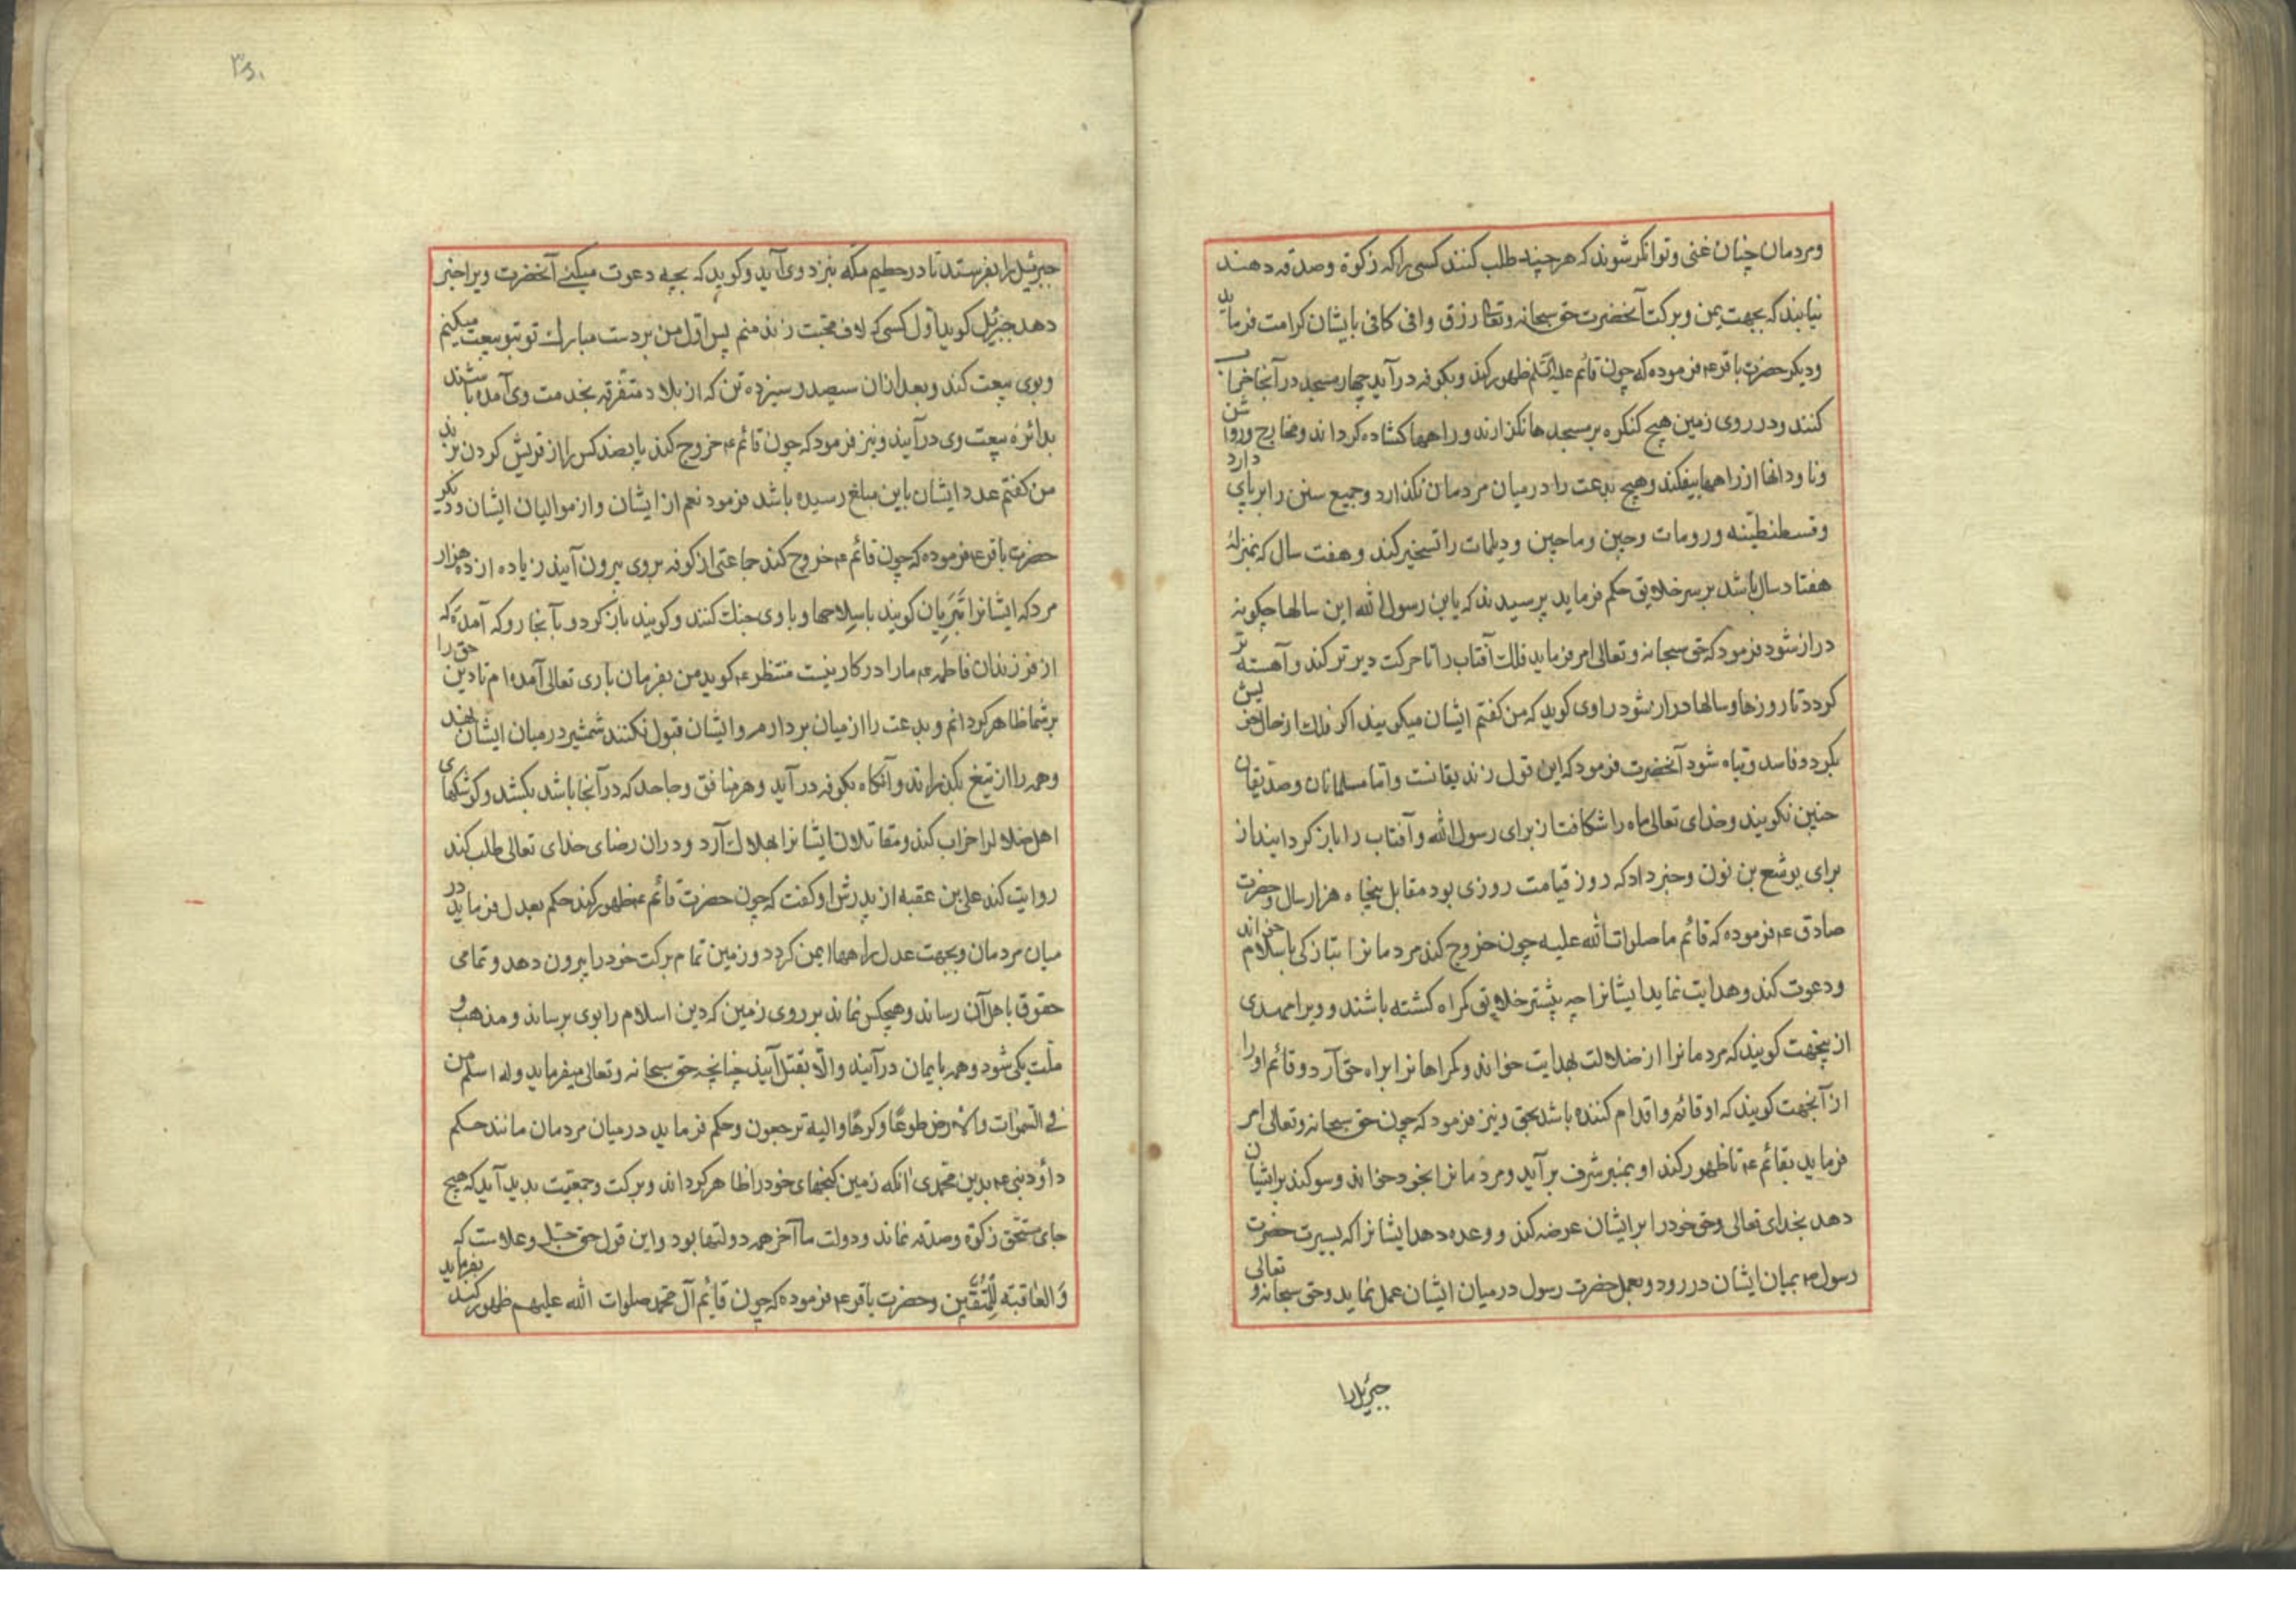 ومردمان چنان غنی وتوانکر شوند که هر چند طلب کنند کسی را که زکوة وصدقه دهند
نیابند که بجهت یمن وبرکت آنحضرت حق سبحانه وتعالی رزق وافی کافی بایشان کرامت فرماید
ودیکر حضرت باقر ع فرموده که چون قائم علیه السلم ظهور کند وبکوفه درآید چهار مسجد در آنجا خراب
کنند ودر روی زمین هیچ کنکره بر مسجدها نکذارند وراهها کشاده کرداند ومخارج وروشن
وناودانها از راهها بیفکند وهیچ بدعت را درمیان مردمان نکذارد وجمیع سنن را برپای دارد
وقسطنطینه ورومات وچین وماچین ودیلمات را تسخیر کند وهفت سال که بمنزلۀ
هفتاد سال باشد بر سر خلایق حکم فرماید پرسیدند که یابن رسول الله این سالها چکونه
دراز شود فرمود که حق سبحانه وتعالی امر فرماید فلک آفتاب را تا حرکت دیرتر کند وآهسته تر
کردد تا روزها وسالها دراز شود راوی کوید که من کفتم ایشان میکویند اکر فلک از حال خویش
بکردد فاسد وتباه شود آنحضرت فرمود که این قول زندیقانست واما مسلمانان وصدیقان
چنین نکویند وخدای تعالی ماه را شکافت از برای رسول الله وآفتاب را باز کردانید از
برای یوشع بن نون وخبر داد که روز قیامت روزی بود مقابل پنجاه هزار سال وحضرت
صادق ع فرموده که قائم ما صلوات الله علیه چون خروج کند مردمانرا بتازکی باسلام خواند
ودعوت کند وهدایت نماید ایشانرا چه بیشتر خلایق کمراه کشته باشند وویرا مهدی
ازینجهت کویند که مردمانرا از ضلالت بهدایت خواند وکمراهانرا براه حق آرد وقائم اورا
از آنجهت کویند که او قائم واقدام کننده باشد بحق ونیز فرمود که چون حق سبحانه وتعالی امر
فرماید بقائم ع تا ظهور کند او بمنبر شرف برآید ومردمانرا بخود خواند وسوکند برایشان
دهد بخدای تعالی وحق خود را بر ایشان عرضه کند ووعده دهد ایشانرا که بسیرت حضرت
رسول ص بمیان ایشان در رود وبعمل حضرت رسول درمیان ایشان عمل نماید وحق سبحانه وتعالی
جبرئیل را
جبرئیل را بفرستد تا در حطیم مکه بنزد وی آید وکوید که بچه دعوت میکنی آنحضرت ویرا خبر
دهد جبرئیل کوید اول کسی که لاف محبت زند منم پس اول من بر دست مبارک تو بتو بیعت میکنم
وبوی بیعت کند وبعد ازان سیصد وسیزده تن که از بلاد متفرقه بخدمت وی آمده باشند
بدائره بیعت وی درآیند ونیز فرمود که چون قائم ع خروج کند پانصد کس را از قریش کردن بزند
من کفتم عدد ایشان باین مبلغ رسیده باشد فرمود نعم از ایشان واز موالیان ایشان ودیکر
حضرت باقر ع فرموده که چون قائم ع خروج کند جماعتی از کوفه بروی بیرون آیند زیاده از ده هزار
مرد که ایشانرا تبریان کویند با سلاحها وبا وی جنک کنند وکویند باز کرد وبآنجا رو که آمدۀ که
از فرزندان فاطمه ع ما را در کار نیست منتظر ع کوید من بفرمان باری تعالی آمده ام تا دین حق را
بر شما ظاهر کردانم وبدعت را از میان بردارم وایشان قبول نکنند شمشیر درمیان ایشان نهند
وهمه را از تیغ بکذرانند وآنکاه بکوفه درآید وهر منافق وجاحد که در آنجا باشد بکشد وکوشکهای
اهل ضلال را خراب کند ومقاتلان ایشانرا بهلاک آرد ودران رضای خدای تعالی طلب کند
روایت کند علی بن عقبه از پدرش او کفت که چون حضرت قائم ع ظهور کند حکم بعدل فرماید در
میان مردمان وبجهت عدل راهها ایمن کردد وزمین تمام برکت خود را بیرون دهد وتمامی
حقوق باهل آن رساند وهیچکس نماند بر روی زمین که دین اسلام را بوی برساند ومذهب و
ملت یکی شود وهمه بایمان درآیند والا بقتل آیند چنانچه حق سبحانه وتعالی میفرماید وله اسلم من
فی السموات والارض طوعًا وکرهًا والیه ترجعون وحکم فرماید درمیان مردمان مانند حکم
داود نبی ع بدین محمدی وانکه زمین کنجهای خود را ظاهر کرداند وبرکت وجمعیت پدید آید که هیچ
جای مستحق زکوة وصدقه نماند ودولت ما آخر همه دولتها بود واین قول حق جل وعلاست که
والعاقبة للمتقین وحضرت باقر ع فرموده که چون قائم آل محمد صلوات الله علیهم ظهور کند بفرماید